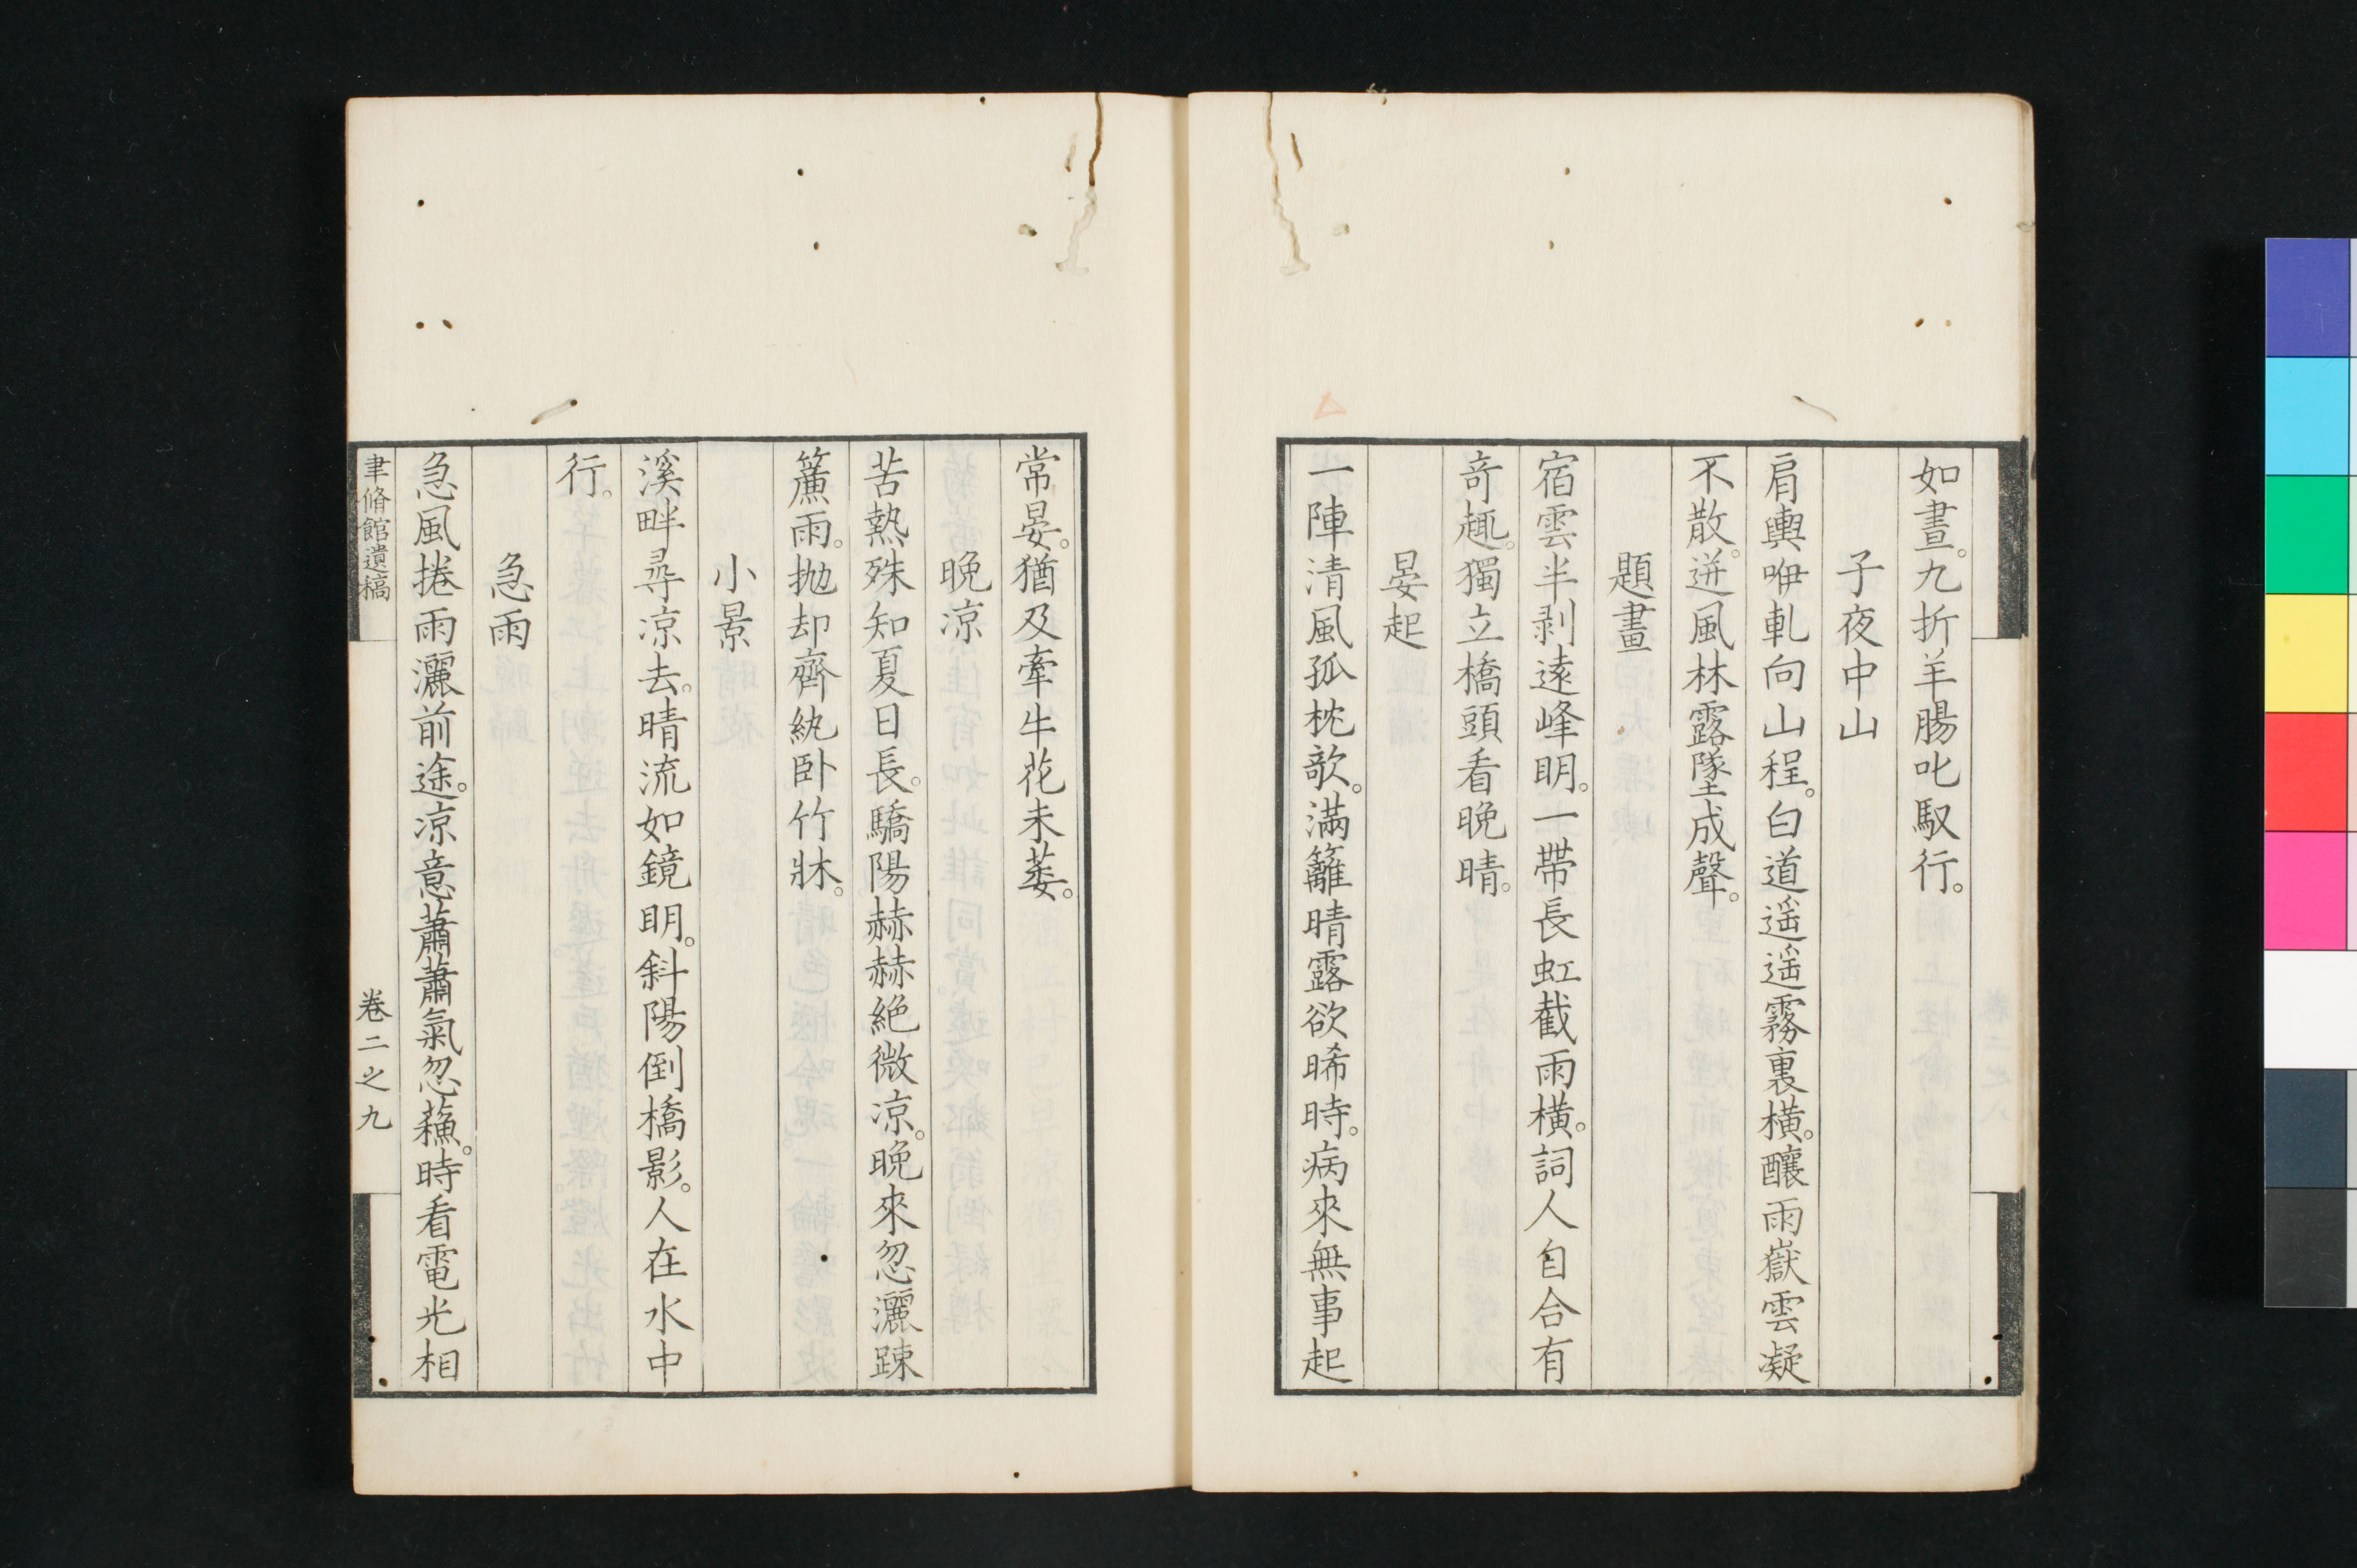 如晝。九折羊腸叱馭行。
子夜中山
肩輿咿軋向山程。白道遥遥霧裏橫。釀雨嶽雲凝
不散。迸風林露墜成聲。
題畫
宿雲半剥遠峰明。一帶長虹截雨橫。詞人自合有
奇趣。獨立橋頭看晚晴。
晏起
一陣清風孤枕欹。滿籬晴露欲晞時。病來無事起
常晏。猶及牽牛花未萎。
晚凉
苦熱殊知夏日長。驕陽赫赫絶微凉。晚來忽灑踈
簾雨。抛却齊紈卧竹牀。
小景
溪畔尋凉去。晴流如鏡明。斜陽倒橋影。人在水中
行。
急雨
急風捲雨灑前途。凉意蕭蕭氣忽蘓。時看電光相
聿脩館遺稿
卷二之九